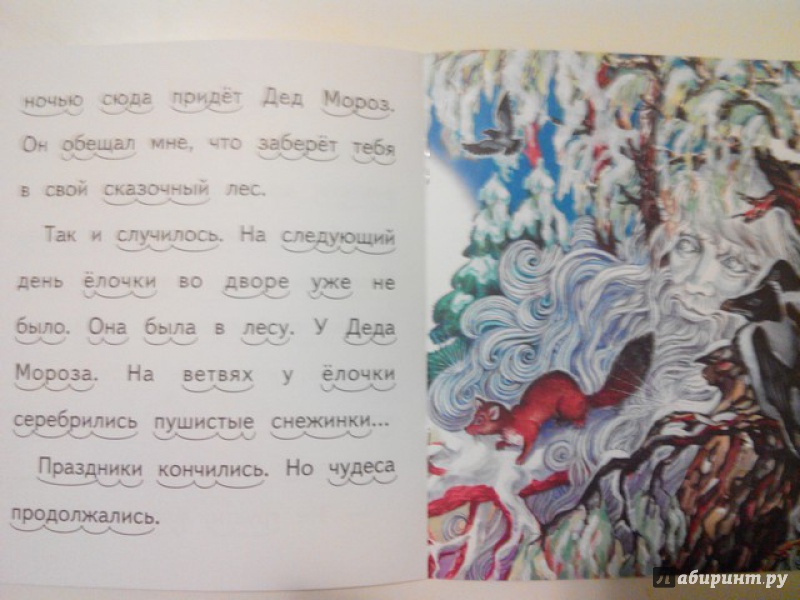 ночью сюда придёт Дед Мороз.
Он обещал мне, что заберёт тебя
в свой сказочный лес.
Так и случилось. На следующий
день ёлочки во дворе уже не
было. Она была в лесу. У Деда
Мороза. На ветвях у ёлочки
серебрились пушистые снежинки...
Праздники кончились. Но чудеса
продолжались.
Лабиринт.ру